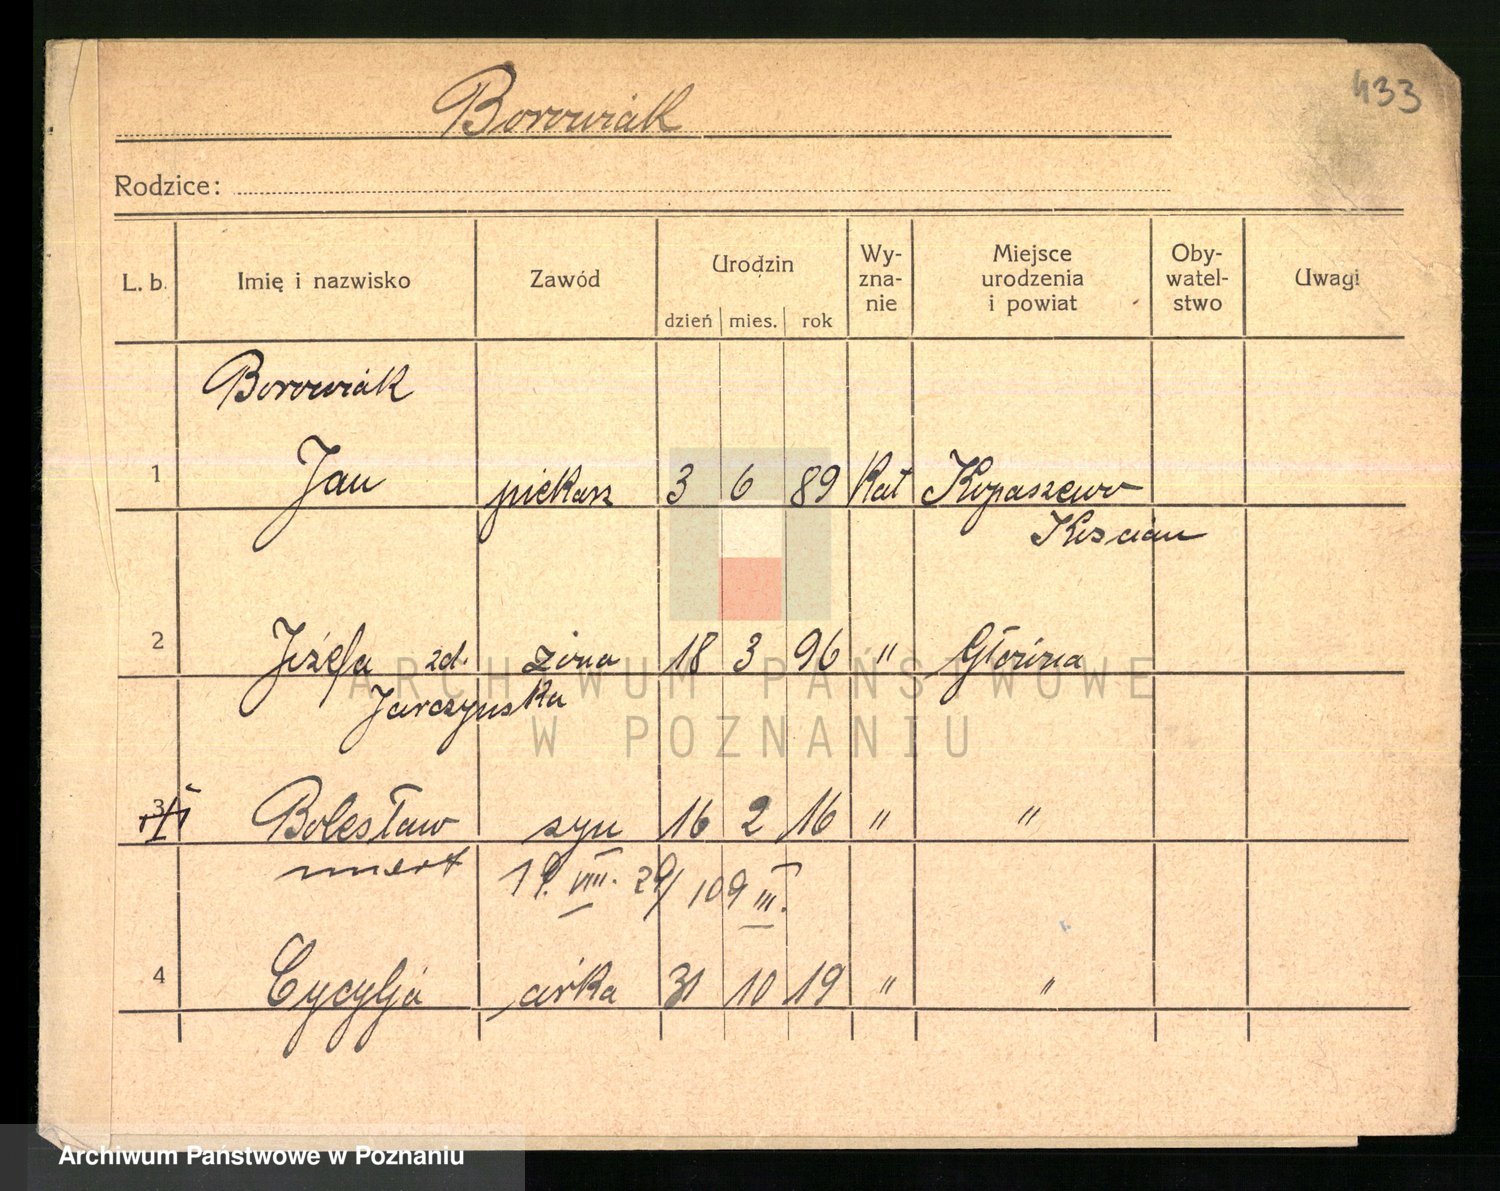 433
Borowiak
Rodzice:
L. b. Imię i nazwisko Zawód Urodzin Wy-zna-nie Miejsce urodzenia i powiat Oby-watel-stwo Uwagi
dzień mies. rok
Borowiak
1 Jan piekarz 3 6 89 Kat Kopaszewo
Kościan
2 Józefa zd. żona 18 3 96 " Główna
Jarczyńska
3 Bolesław syn 16 2 16 " "
umarł 19. VIII. 29/109 III.
4 Cycylja córka 31 10 19 " "
ARCHIWUM PAŃSTWOWE
W POZNANIU
Archiwum Państwowe w Poznaniu